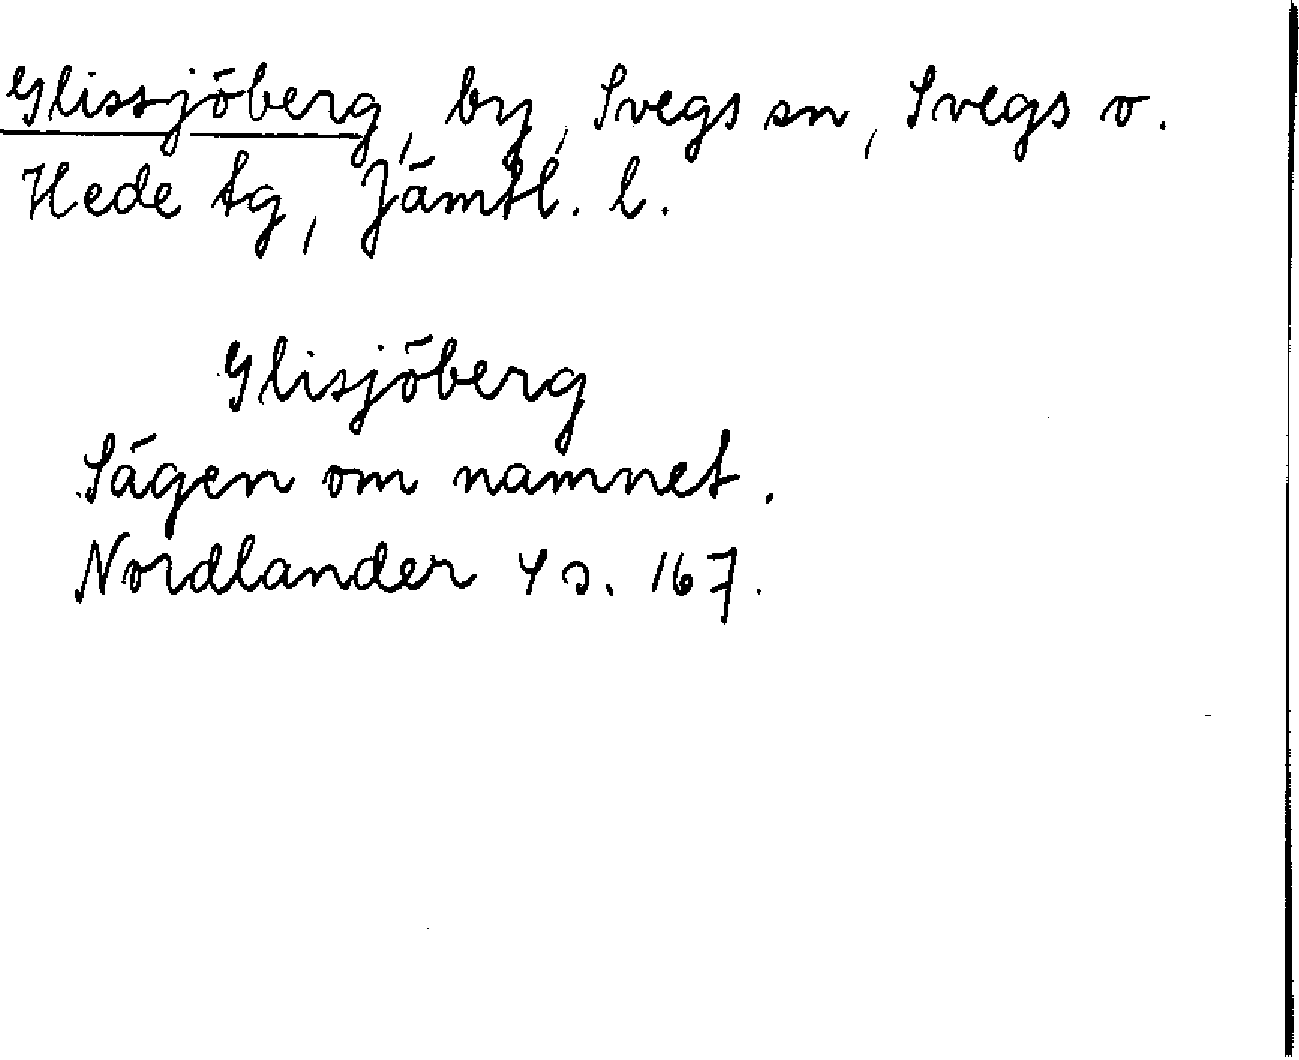 Glissjöberg, by, Svegs sn, Svegs v.
Hede tg, Jämtl. l.
Glisjöberg
Sägen om namnet.
Nordlander 4 s. 167.